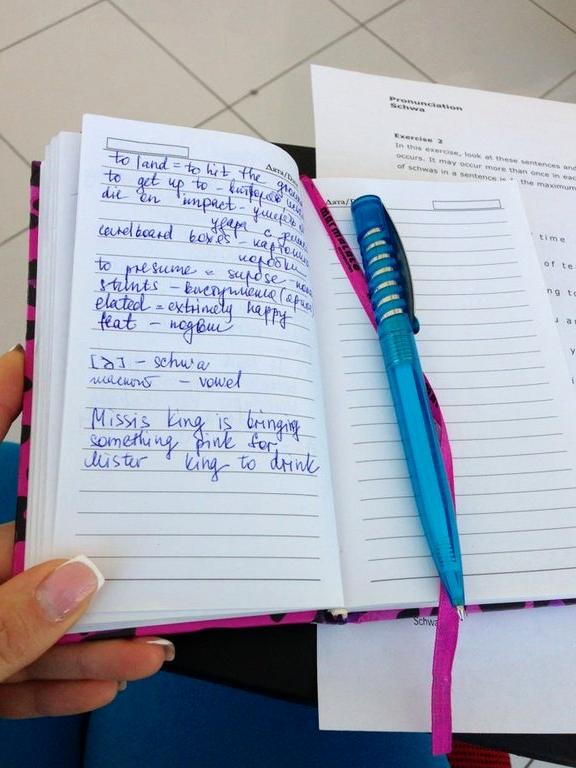 Дата/Da
to land = to hit the
to get up to -
die on impact -
удара с
cardboard boxes -
to presume = supose -
stunts - выступления
elated = extrimely happy
feat - подвиг
[ə] - schwa
гласный - vowel
Missis King is bringing
something pink for
Mister King to drink
Дата/Da
Pronunciation
Schwa
Exercise 2
In this exercise, look at these sentences and
occurs. It may occur more than once in eac
of schwas in a sentence is the maximum
time
of te
ng to
Schwa